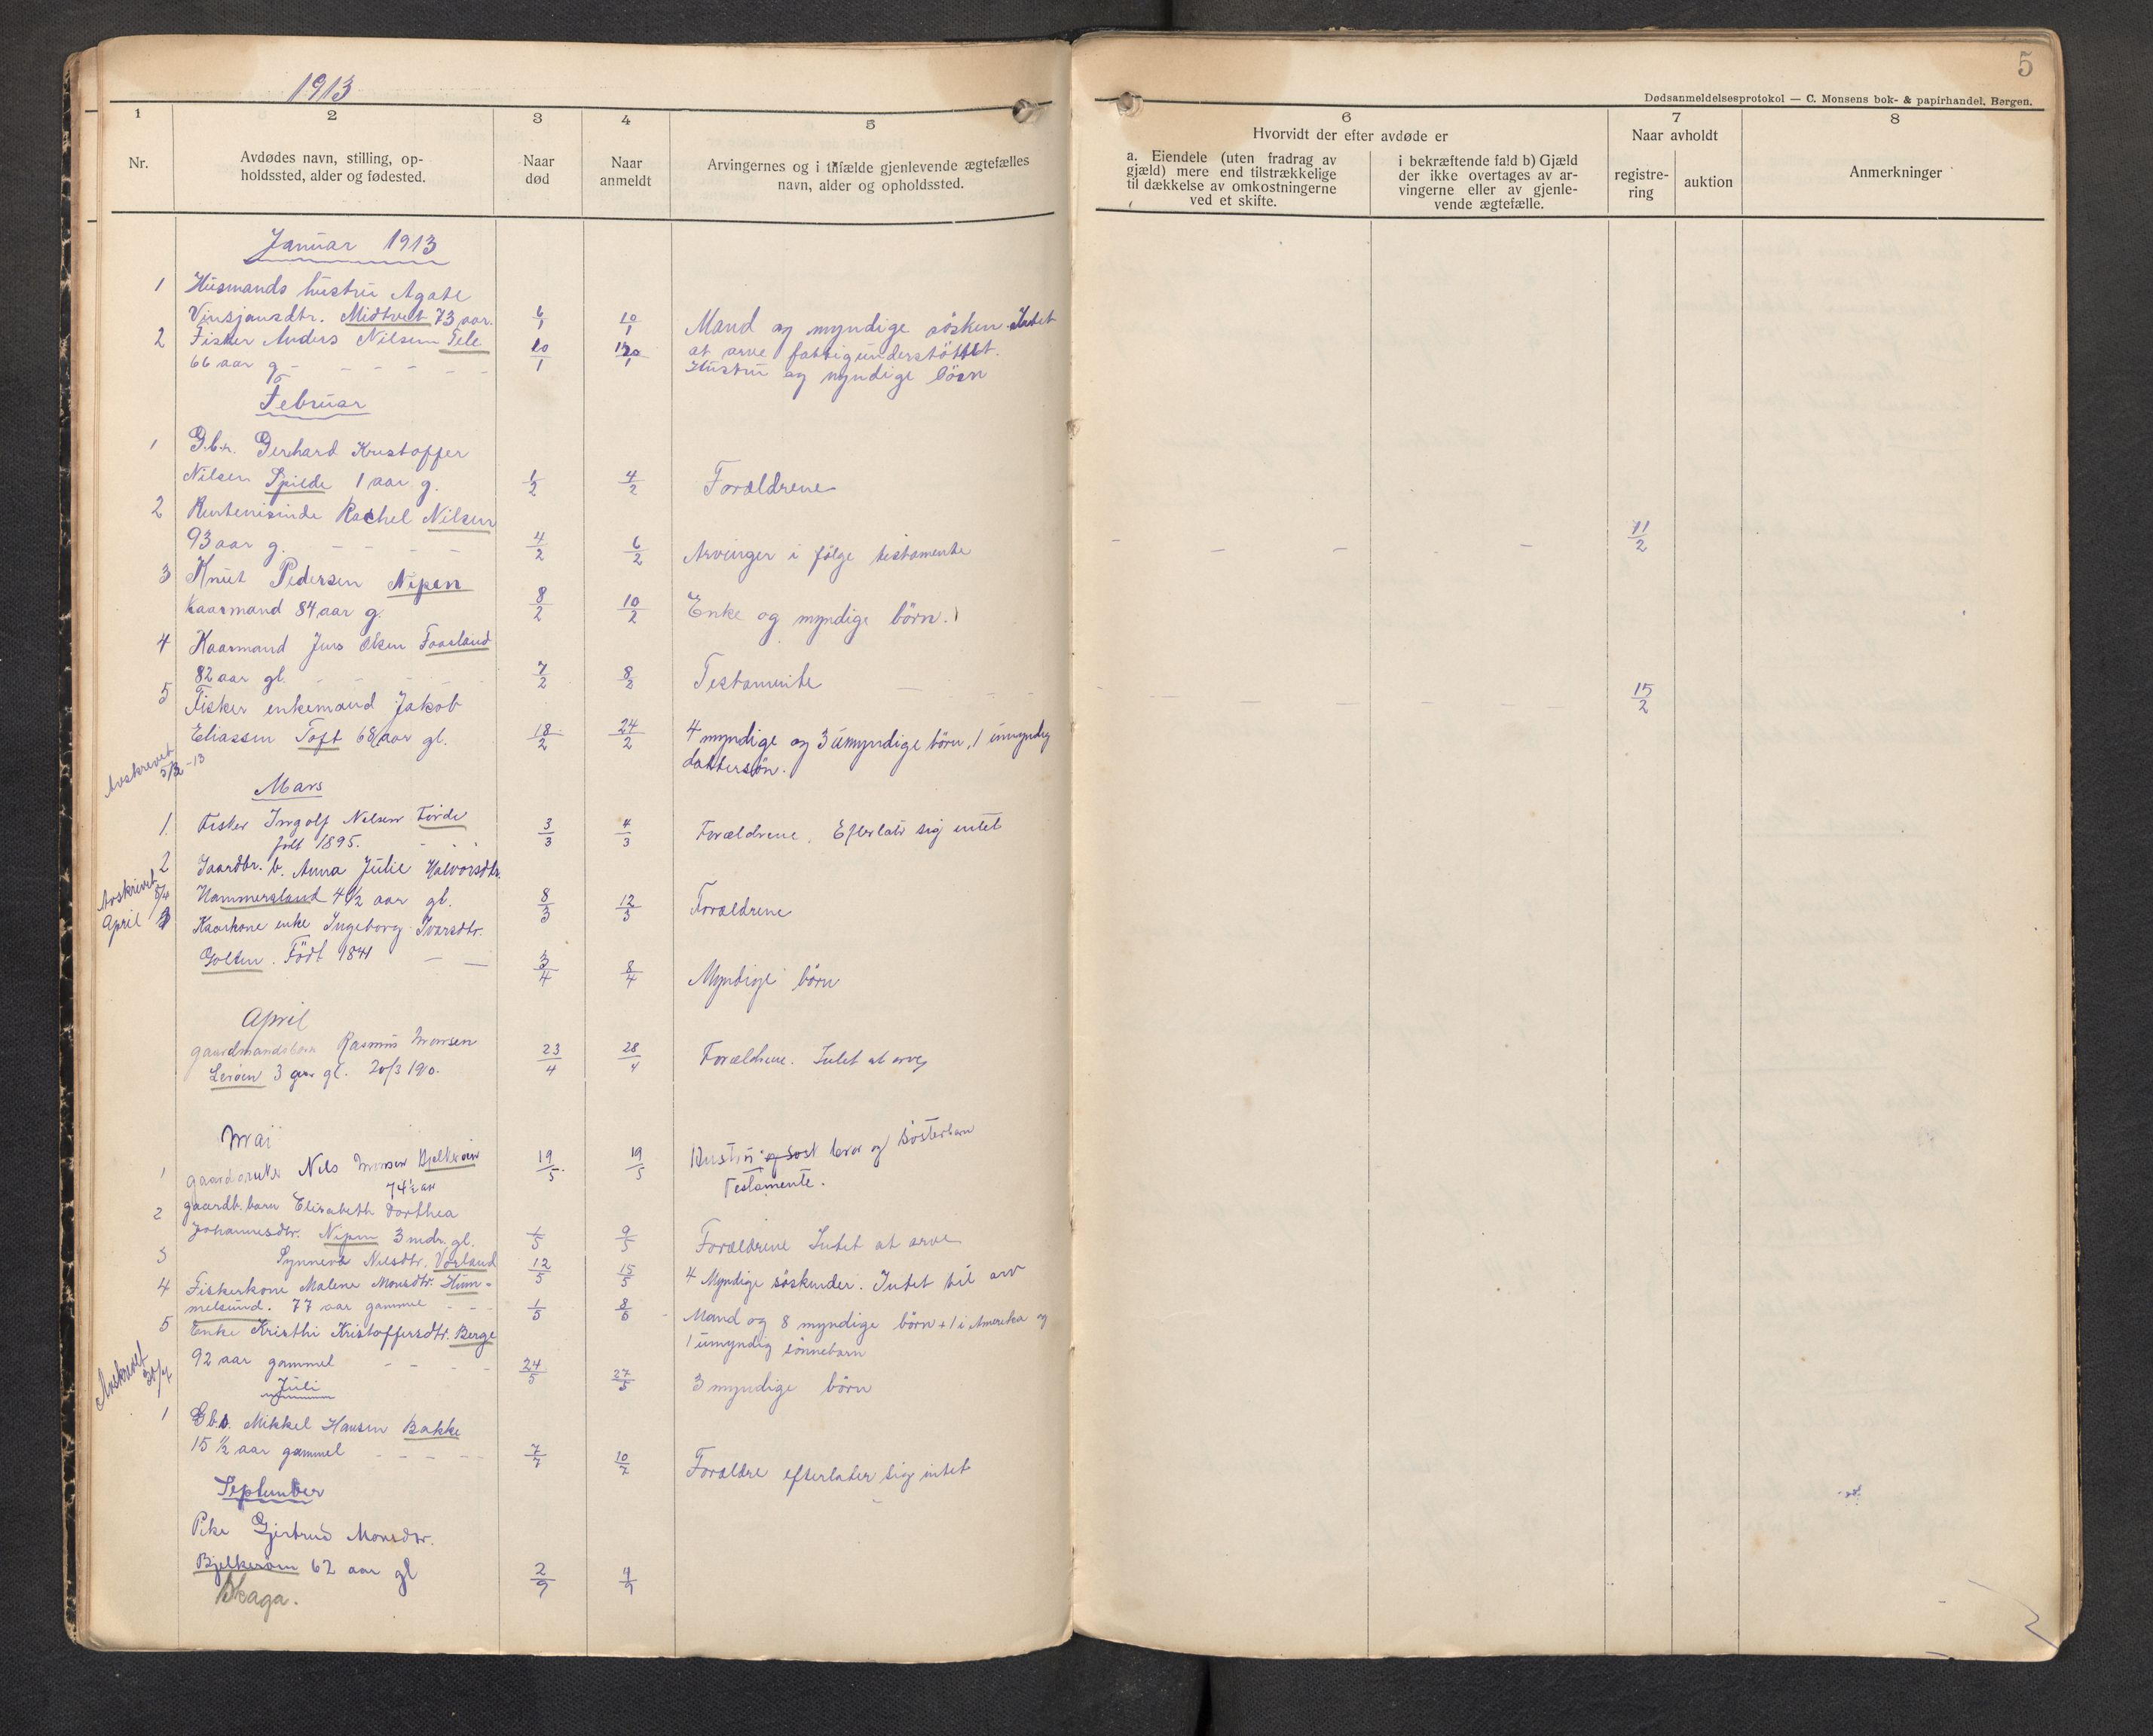 1913
5
Dødsanmeldelsesprotokol — C. Monsens bok- & papirhandel, Bergen.
1 2 3 4 5 6 7 8
Nr.
Avdødes navn, stilling, op-
holdssted, alder og fødested.
Naar
død
Naar
anmeldt
Arvingernes og i tilfælde gjenlevende ægtefælles
navn, alder og opholdssted.
Hvorvidt der efter avdøde er
a. Eiendele (uten fradrag av
gjæld) mere end tilstrækkelige
til dækkelse av omkostningerne
ved et skifte.
i bekræftende fald b) Gjæld
der ikke overtages av ar-
vingerne eller av gjenle-
vende ægtefælle.
Naar avholdt
registre-
ring
auktion
Anmerkninger
Januar 1913
1 Husmands hustru Agate
Vinsjansdtr. Midtveit 73 aar. 6/1 10/1 Mand og myndige søsken. Intet
2 Fisker Anders Nilsen Tele 10/1 at arve fattigunderstöttet.
66 aar g - - - - - Hustru og myndige börn
Februar
1 G.b.r. Gerhard Kristoffer
Nilsen Spilde 1 aar g. 1/2 4/2 Forældrene
2 Rentenisinde Rachel Nilsen
93 aar g. - - - - 4/2 6/2 Arvinger i følge testamente - - - - - 11/2
3 Knut Pedersen Nipen
Kaarmand 84 aar g. 8/2 10/2 Enke og myndige börn.
4 Kaarmand Jens Olsen Faarland
82 aar gl. - - - - 7/2 8/2 Testamente - - - - - 15/2
5 Fisker enkemand Jakob
Eliassen Toft 68 aar gl. 18/2 24/2 4 myndige og 3 umyndige börn, 1 umyndig
dattersön.
Avskrevet
5/3 -13
Mars
1. Fisker Ingolf Nilsen Förde 3/3 4/3 Forældrene. Efterlatr sig intet
født 1895.
2 Gaardbr. b. Anna Julie Halvorsdtr.
Avskrivet 8/4
Hammersland 4 1/2 aar gl. 8/3 12/3 Forældrene
April 3 Kaarkone enke Ingeborg Ivarsdtr.
Golten. Født 1841 - - 3/4 8/4 Myndige börn
April
gaardmandsbarn Rasmus Monsen
Leröen 3 aar gl. 20/3 1910. 23/4 28/4 Forældrene. Intet at arve
Mai
1 gaardbruker Nils Monsen Bjelkeröen 19/5 19/5 Hustru og søst bror og søsterbarn
74 1/2 aar Testamente.
2 gaardb. barn Elisabeth Dorthea
Johannesdtr. Nipen 3 mdr. gl. 1/5 9/5 Forældrene Intet at arve
3 Synneva Nilsdtr. Vorland 12/5 15/5 4 Myndige söskender. Intet til arv
4 Fiskerkone Malene Monsdtr. Hum-
melsund. 77 aar gammel - - - 1/5 8/5 Mand og 8 myndige börn + 1 i Amerika og
1 umyndig sönnebarn
5 Enke Kristhi Kristoffersdtr. Berge
92 aar gammel - - - - 24/5 27/5 3 myndige börn
Avskrevet
Juli
1 Gb.s. Mikkel Hansen Bakke
15 1/2 aar gammel - - - - - 7/7 10/7 Forældre efterlater sig intet
September
Pike Gjertrud Monsdtr.
Bjelkeröen 62 aar gl 2/9 4/9
Skaga.